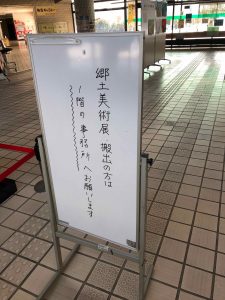 郷土美術展　搬出の方は
1階の事務所へお願いします